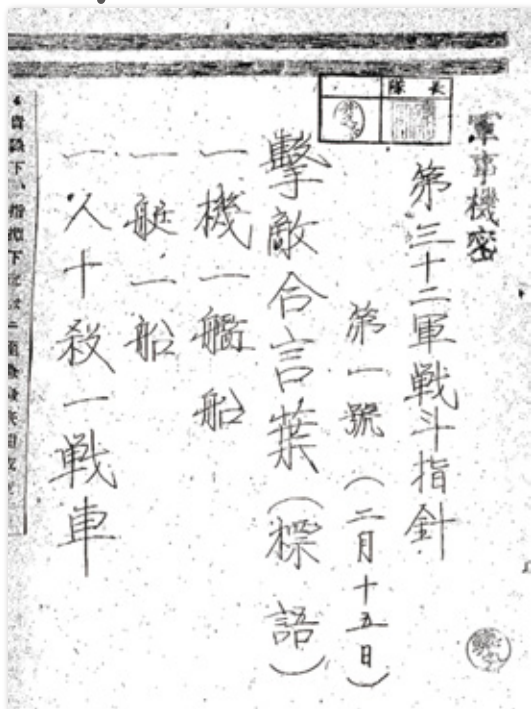 軍事機密
隊長
第三十二軍戦斗指針
第一號(二月十五日)
擊敵合言葉(標語)
一機一艦船
一艇一船
一人十殺一戦車